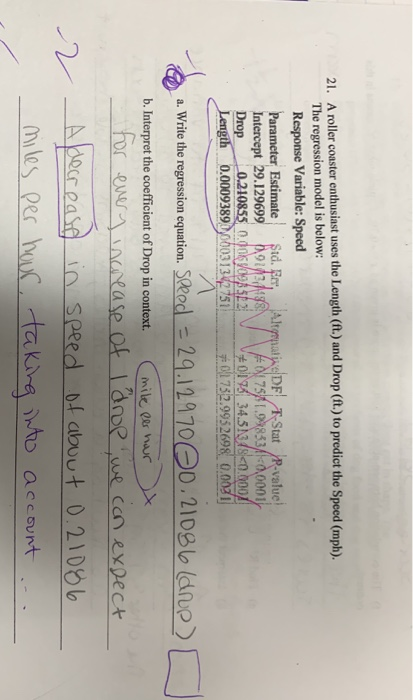 21. A roller coaster enthusiast uses the Length (ft.) and Drop (ft.) to predict the Speed (mph).
The regression model is below:
Response Variable: Speed
Parameter Estimate Std. Err. Alternative DF T-Stat P-value
Intercept 29.129699 ≠ 0 <0.0001
Drop 0.210855 ≠ 0 175 <0.0001
Length 0.0009389 ≠ 0 0.0031
-1
a. Write the regression equation. Speed = 29.12970 - 0.21086 (drop)
b. Interpret the coefficient of Drop in context. mile per hour
for every increase of 1 drop, we can expect
-2 A decrease in speed of about 0.21086
miles per hour, taking into account ...